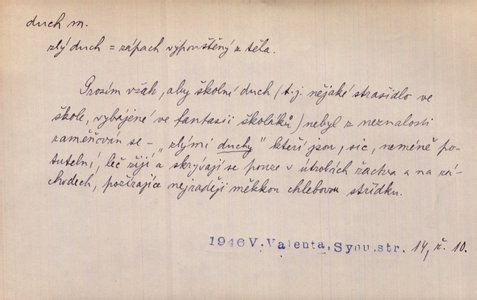 duch m.
zlý duch = zápach vypouštěný z těla.
Prosím však, aby školní duch (t.j. nějaké strašidlo ve
škole, vybájené ve fantasii školáků) nebyl z neznalosti
zaměňován se - "zlými duchy" kteří jsou, sic, neméně po-
tutelní, leč žijí a skrývají se pouze v útrobách žactva a na zá-
chodech, požírajíce nejraději měkkou chlebovou střídku.
1946 V. Valenta, Synu. str. 14, ř. 10.